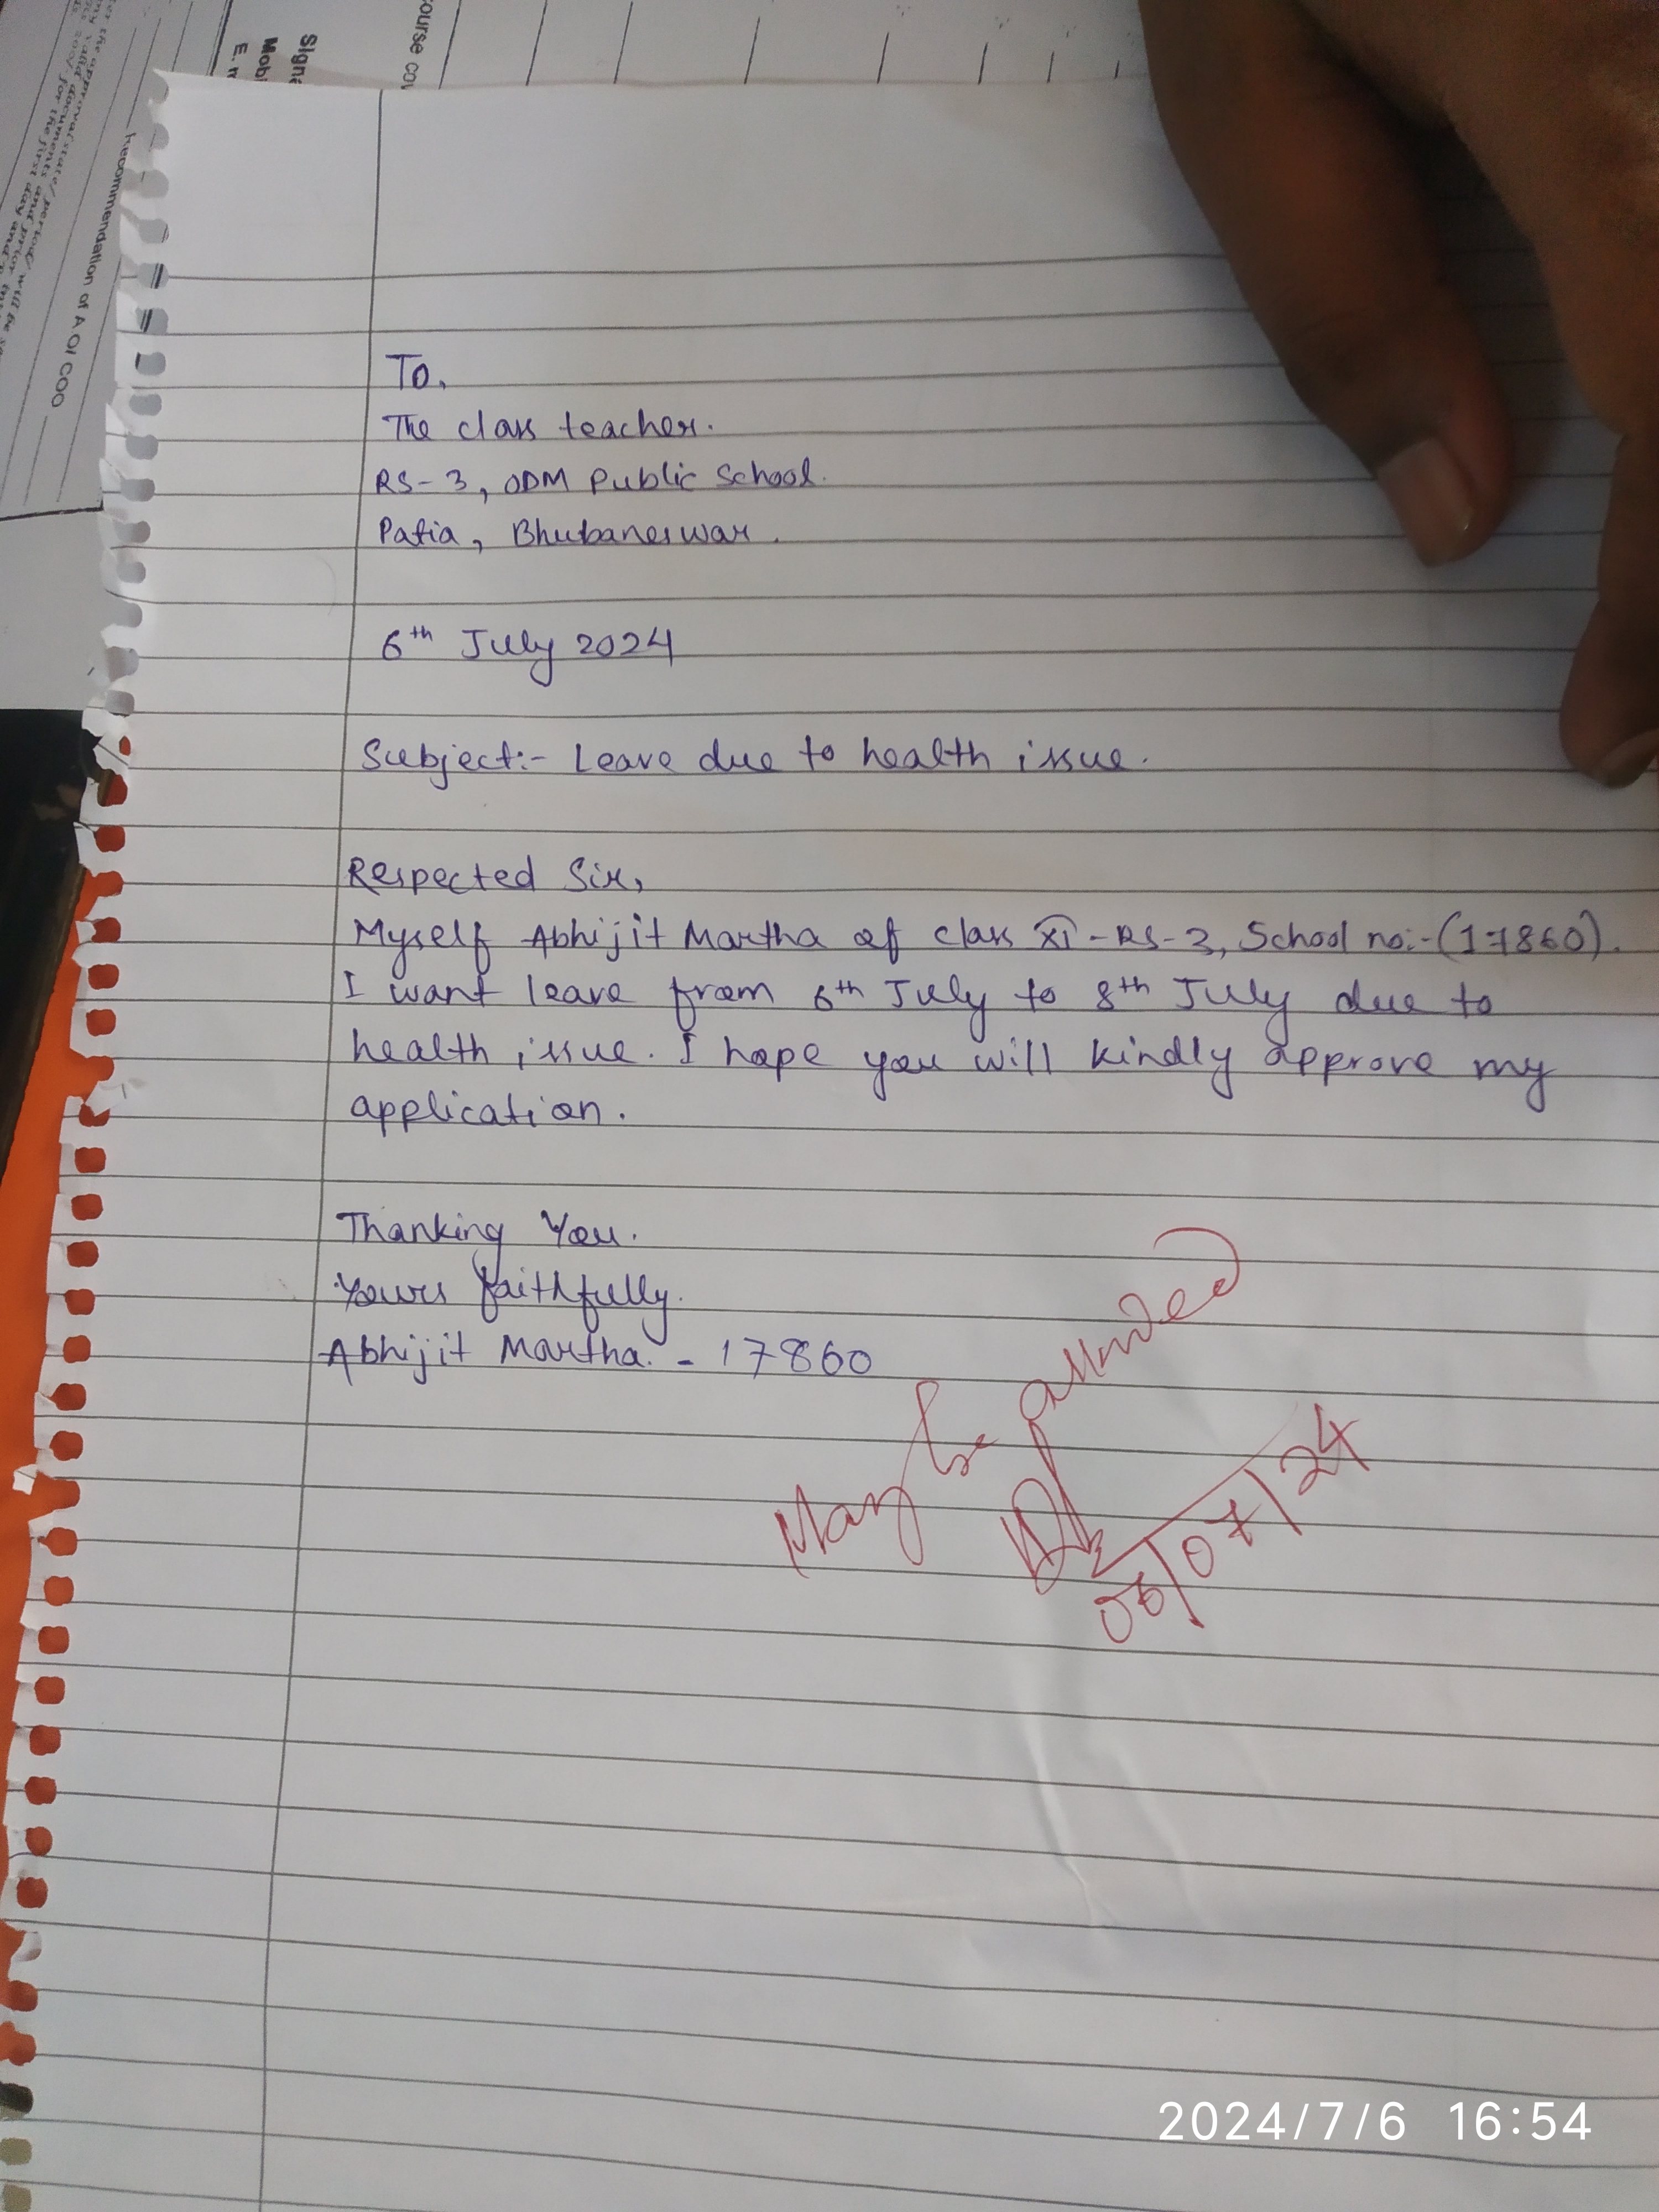 ourse cov
Signa
Mobi
E. m
Recommendation of A.O/ COO
To,
The class teacher.
RS-3, ODM Public School.
Patia, Bhubaneswar.
6th July 2024
Subject:- Leave due to health issue.
Respected Sir,
Myself Abhijit Martha of class XI-RS-3, School no:-(17860).
I want leave from 6th July to 8th July due to
health issue. I hope you will kindly approve my
application.
Thanking You.
Yours faithfully.
Abhijit Martha. - 17860
May be allowed
06/07/24
2024/7/6 16:54